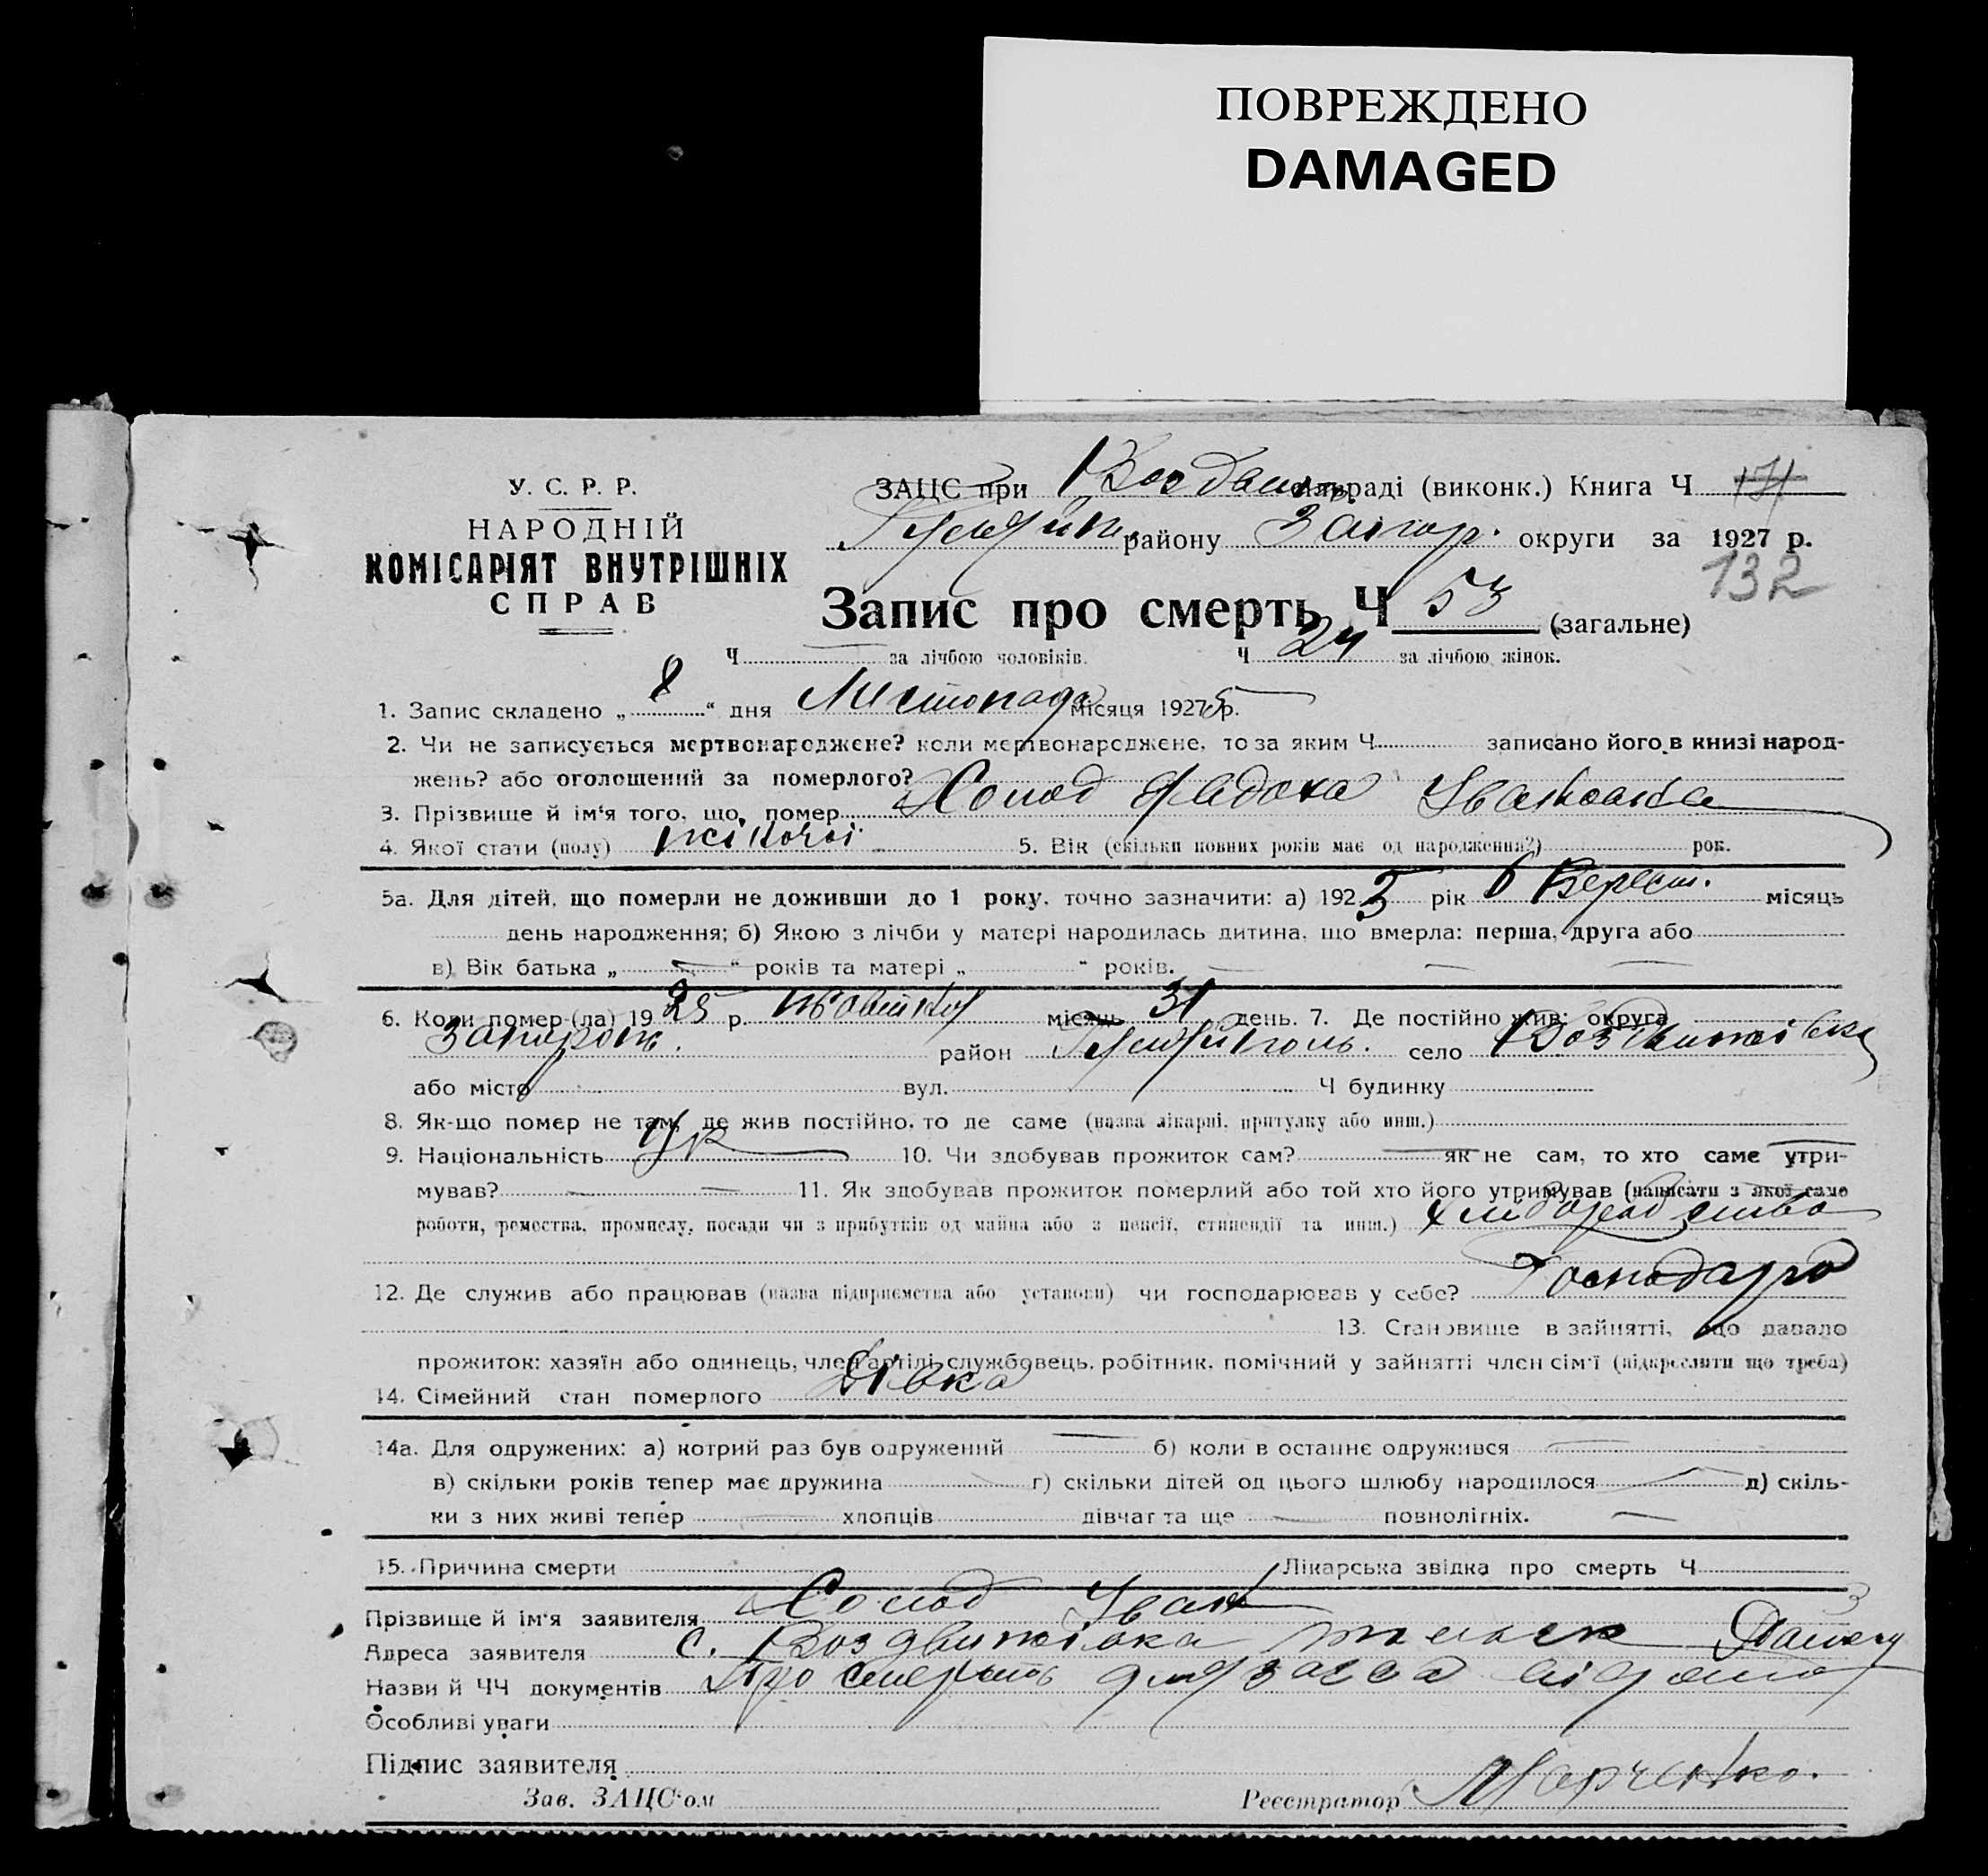 ПОВРЕЖДЕНО
DAMAGED
У. С. Р. Р.
НАРОДНІЙ
КОМІСАРІЯТ ВНУТРІШНІХ
СПРАВ
ЗАЦС при сільраді (виконк.) Книга Ч
району Запор. округи за 1927 р.
132
Запис про смерть Ч 53 (загальне)
Ч — за лічбою чоловіків. Ч 24 за лічбою жінок.
1. Запис складено „ 8 “ дня Листопада місяця 1927 5 р.
2. Чи не записується мертвонароджене? коли мертвонароджене, то за яким Ч записано його в книзі народ-
жень? або оголошений за померлого?
3. Прізвище й ім‘я того, що помер Солод Івановна
4. Якої стати (полу) жіночої 5. Вік (скільки повних років має од народження?) рок.
5а. Для дітей, що померли не доживши до 1 року, точно зазначити: а) 192 5 рік 6 Верес. місяць
день народження; б) Якою з лічби у матері народилась дитина, що вмерла: перша, друга або
в) Вік батька „ — “ років та матері „ “ років. — — —
6. Коли помер (ла) 19 25 р. жовтня місяць 31 день. 7. Де постійно жив: округа
Запорож. район Гуляйполь. село Воздвижівка
або місто вул. Ч будинку
8. Як-що помер не там, де жив постійно, то де саме (назва лікарні, притулку або инш.)
9. Національність Укр 10. Чи здобував прожиток сам? — як не сам, то хто саме утри-
мував? — — 11. Як здобував прожиток померлий або той хто його утримував (написати з якої саме
роботи, ремества, промислу, посади чи з прибутків од майна або з пенсії, стипендії та инш.)
12. Де служив або працював (назва підприємства або установи) чи господарював у себе? Господарю
13. Становище в зайнятті, що давало
прожиток: хазяїн або одинець, член артілі, службовець, робітник, помічний у зайнятті член сім‘ї (підкреслити що треба)
14. Сімейний стан померлого Дівка
14а. Для одружених: а) котрий раз був одружений — б) коли в останнє одружився —
в) скільки років тепер має дружина — г) скільки дітей од цього шлюбу народилося — д) скіль-
ки з них живі тепер — хлопців дівчат та ще — повнолітніх. —
15. Причина смерти Лікарська звідка про смерть Ч
Прізвище й ім‘я заявителя Солод Іван
Адреса заявителя с. Воздвижівка
Назви й ЧЧ документів Про смерть
Особливі уваги
Підпис заявителя
Зав. ЗАЦС‘ом Реєстратор Марченко.